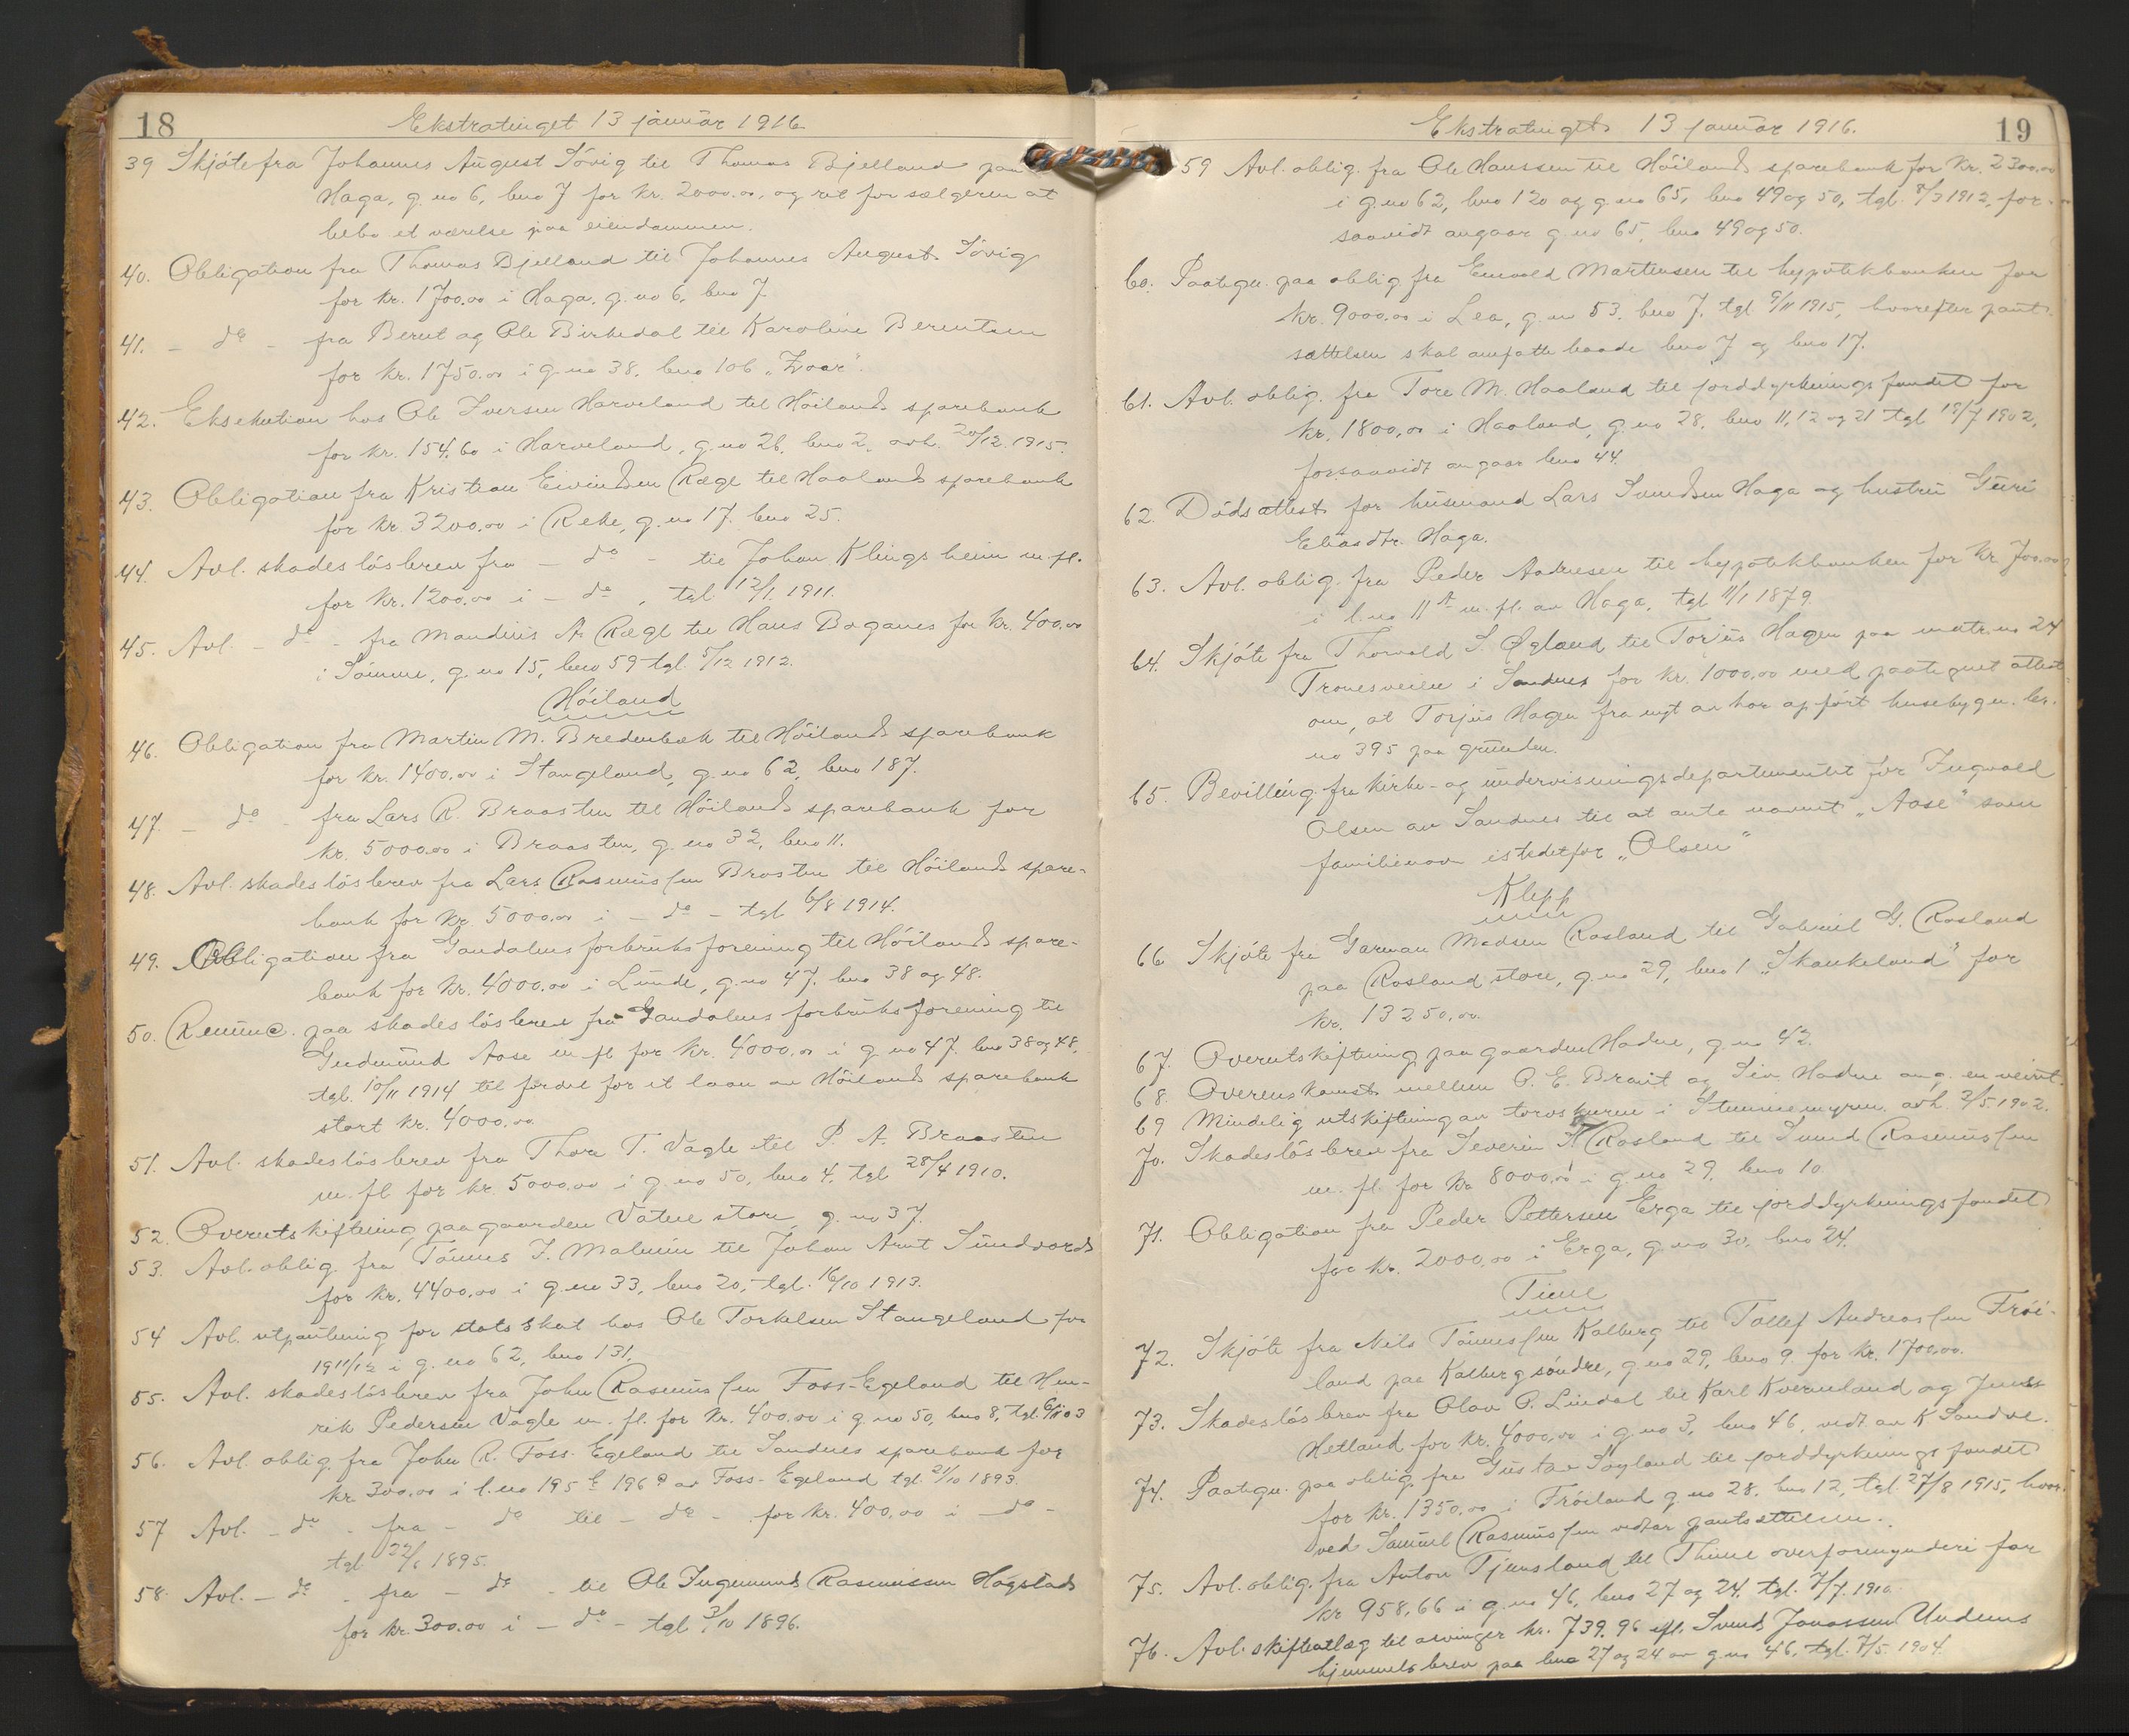 18
Ekstratinget 13 januar 1916
39 Skjöte fra Johannes August Sövig til Thomas Bjelland paa
Haga, g. no 6, bno 7 for kr. 2000.00, og ret for sælgeren at
bebo et værelse paa eiendommen.
40. Obligation fra Thomas Bjelland til Johannes August Sövig
for kr. 1700.00 i Haga, g. no 6, bno 7.
41. - do - fra Berut og Ole Birkedal til Karoline Berentsen
for kr. 1750.00 i g. no 38, bno 106 „Zoar".
42. Eksekution hos Ole Iversen Harveland til Höilands sparebank
for kr. 154.60 i Harveland, g. no 26, bno 2, avh. 20/12 1915.
43. Obligation fra Kristian Eivindsen Ræge til Haalands sparebank
for kr. 3200.00 i Reke, g. no 17. bno 25.
44. Avl. skadeslösbrev fra - do - til Johan Klingsheim m. fl.
for kr. 1200.00 i - do , tgl. 12/1 1911.
45. Avl. - do - fra Mandius A. Rægl til Hans Boganes for kr. 400.00
i Sömme, g. no 15, bno 59 tgl. 5/12 1912.
Höiland
46. Obligation fra Martin M. Bredenbæk til Höilands sparebank
for kr. 1400.00 i Stangeland, g. no 62, bno 187.
47. - do - fra Lars R. Braasten til Höilands sparebank for
kr. 5000.00 i Braasten, g. no 32, bno 11.
48. Avl. skadeslösbrev fra Lars Rasmussen Brasten til Höilands spare-
bank for kr. 5000.00 i - do - tgl 6/8 1914.
49. Obligation fra Gandalens forbruksforening til Höilands spare-
bank for kr. 4000.00 i Lunde, g. no 47. bno 38 og 48.
50. Renunc. paa skadeslösbrev fra Gandalens forbruksforening til
Gudmund Aase m fl for kr. 4000.00 i g. no 47. bno 38 og 48,
tgl. 10/11 1914 til fordel for et laan av Höilands sparebank
stort kr. 4000.00
51. Avl. skadeslösbrev fra Thore T. Vagle til P. A. Braasten
m. fl for kr. 5000.00 i g. no 50, bno 4, tgl 28/4 1910.
52. Overutskiftning paa gaarden Vatne store, g. no 37.
53. Avl. oblig. fra Tönnes J. Malmin til Johan Arnt Sundvords
for kr. 4400.00 i g. no 33, bno 20, tgl. 16/10 1913.
54 Avl. utpantning for statsskat hos Ole Torkelsen Stangeland for
1911/12 i g. no 62, bno 131.
55. Avl. skadeslösbrev fra John Rasmussen Foss-Egeland til Hen-
rik Pedersen Vagle m. fl. for kr. 400.00 i g. no 50, bno 8, tgl.
56. Avl. oblig. fra John R. Foss-Egeland til Sandnes sparebank for
kr. 300.00 i l. no 195 196 av Foss-Egeland tgl. 21/10 1893.
57 Avl. - do - fra - do til - do - for kr. 400.00 i - do -
tgl 1895.
58. Avl. - do - fra - do - til Ole Ingemunds Rasmussen Högstad
for kr. 300.00 i - do - tgl 3/10 1896.
19
Ekstratinget 13 januar 1916.
59 Avl. oblig. fra Ole Hanssen til Höilands sparebank for kr. 2300.00
i g. no 62, bno 120 og g. no 65, bno 49 og 50, tgl. 8/3 1912, for-
saavidt angaar g. no 65, bno 49 og 50.
60. Paategn. paa oblig fra Enevald Martinsen til hypotekbanken for
kr. 9000.00 i Lea, g. no 53. bno 7, tgl 9/11 1915, hvorefter pant-
sættelsen skal omfatte baade bno 7 og bno 17.
61. Avl. oblig. fra Tore M. Haaland til jorddyrkningsfondet for
kr. 1800.00 i Haaland, g. no 28, bno 11, 12 og 21 tgl 18/7 1902,
forsaavidt angaar bno 44.
62. Dödsattest for husmand Lars Svendsen Haga og hustru Guri
Eliasdtr. Haga.
63. Avl. oblig. fra Peder Andresen til hypotekbanken for kr 700.00
i l. no 11 A m. fl. av Haga, tgl 11/1 1879.
64. Skjöte fra Thorvald S. Ogland til Torjus Hagen paa matr. no 24
Tronesveien i Sandnes for kr. 1000.00 med paategnet attest
om, at Torjus Hagen fra nyt av har opfört husebygn. br.
no 395 paa grunden.
65. Bevilling fra kirke- og undervisningsdepartementet for Ingvald
Olsen av Sandnes til at anta navnet „Aase" som
familienavn istedetfor „Olsen"
Klepp
66 Skjöte fra Garman Madsen Rosland til Gabriel G. Rosland
paa Rosland store, g. no 29, bno 1 „Skankeland" for
kr. 13250.00.
67. Overutskiftning paa gaarden Hadne, g. no 42.
68. Overenskomst mellem O. E. Braut og Siv Hadne ang. en veiret.
69 Mindelig utskiftning av torvskuren i Stemmemyren. avh 2/5 1902.
70. Skadeslösbrev fra Severin Rosland til Svend Rasmussen
m. fl. for kr 8000.00 i g. no 29, bno 10
71. Obligation fra Peder Pettersen Erga til jorddyrkningsfondet
for kr. 2000.00 i Erga, g. no 30, bno 24.
Time
72. Skjöte fra Nils Tönnessen Kalberg til Tollef Andreassen Fröi-
land paa Kalberg söndre, g. no 29, bno 9 for kr. 1700.00.
73. Skadeslösbrev fra Olav O. Lindal til Karl Kverneland og Jens
Hetland for kr. 4000.00 i g. no 3, bno 46, vedt. av K Sandve.
74. Paategn. paa oblig. fra Gustav Soyland til jorddyrkningsfondet
for kr. 1350.00 i Fröiland g. no 28, bno 12, tgl. 27/8 1915, hvor-
ved Samuel Rasmussen vedtar pantsettelsen.
75. Avl. oblig. fra Anton Tjensland til Thime overformynderi for
kr 958,66 i g. no 46, bno 27 og 24, tgl. 7/7. 1910
76. Avl. skifteutlæg til arvinger kr. 739.96 eft. Svend Jonassen Undems
hjemmelsbrev paa bno 27 og 24 av g. no 46, tgl. 7/5. 1904.